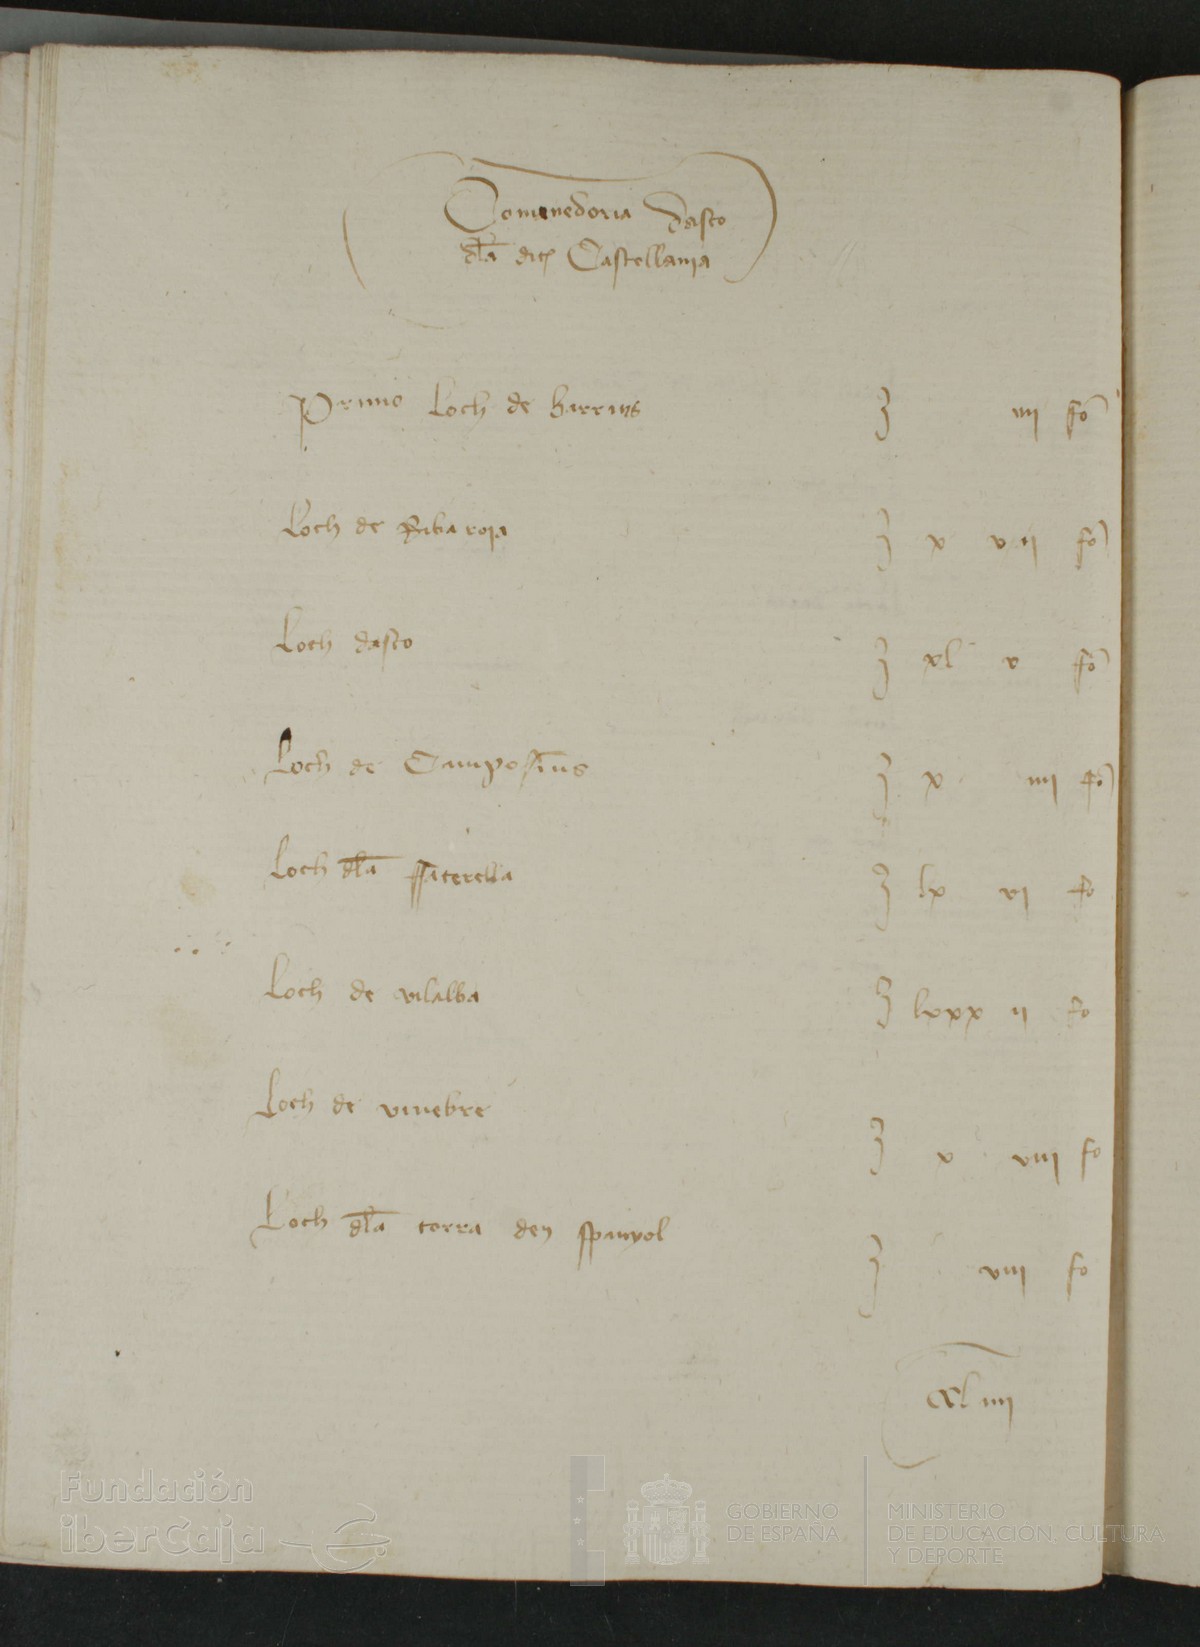 Comanedoria dasco
dla dita Castellania
Primo Loch de barrins iiii fo
Loch de Ribaroia x vii fo
Loch dasco xl v fo
Loch de Camposins x iiii fo
Loch dla ffaterella lx vi fo
Loch de vilalba lxxx ii fo
Loch de vinebre x viii fo
Loch dla torra den spanyol viii fo
Fundación
iberCaja
GOBIERNO
DE ESPAÑA
MINISTERIO
DE EDUCACIÓN, CULTURA
Y DEPORTE